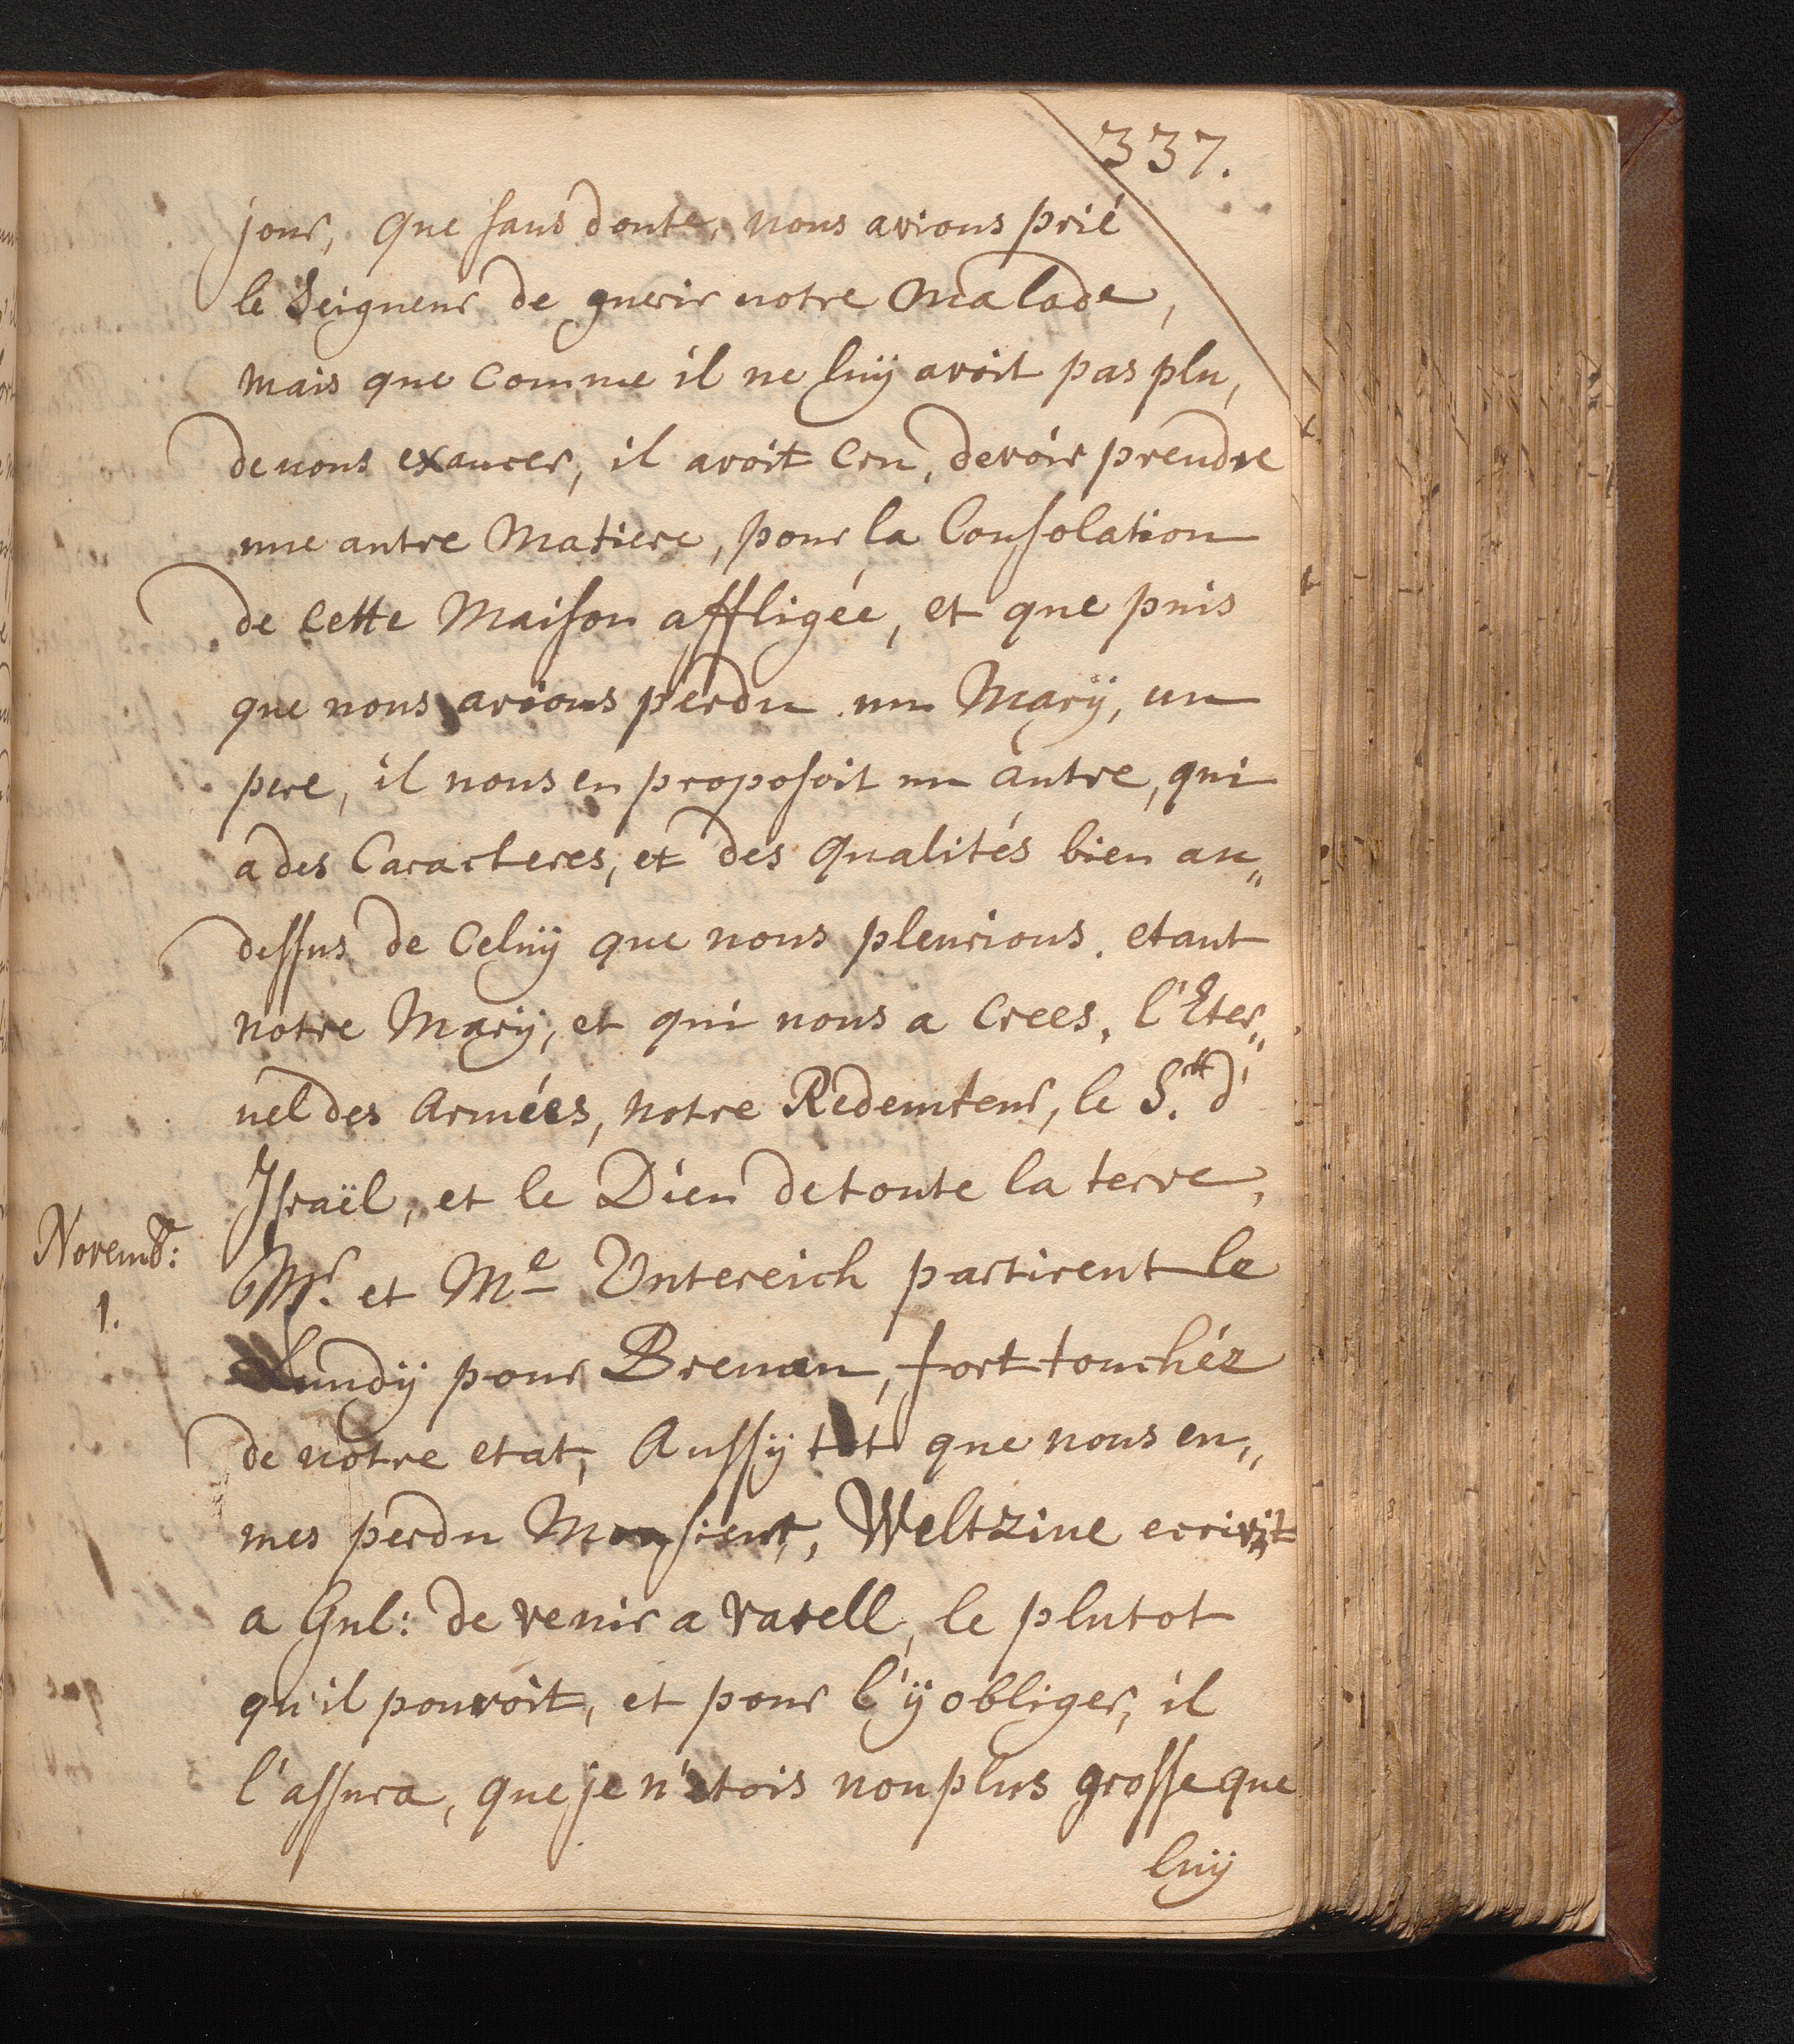 337.
jour, que sans doute, nous avions prié
le Seigneur de guerir notre Malade,
mais que comme il ne luÿ avoit pas plu,
de nous exaucer, il avoit cru, devoir prendre
une autre Matiere, pour la Consolation
de cette Maison affligée, et que puis
que nous avions perdu un Marÿ, un
pere, il nous en proposoit un autre, qui
a des Caracteres, et des qualités bien au„
dessus de Celuÿ que nous pleurions. etant
notre Marÿ, et qui nous a Crees, l'Eter„
nel des Armées, notre Redemteur, le S.tt d'
Israël, et le Dieu de toute la terre,
Novembr:
1.
Mr. et Me Untereich partirent le
Lundÿ pour Bremen, fort touchéz
de notre etat, Aussÿ tot que nous eu„
mes perdu Monsieur, Weltzine ecrivit
a Gul: de venir a varell, le plutot
qu'il pouvoit, et pour l'ÿ obliger, il
l'assura, que je n'etois non plus grosse que
luÿ